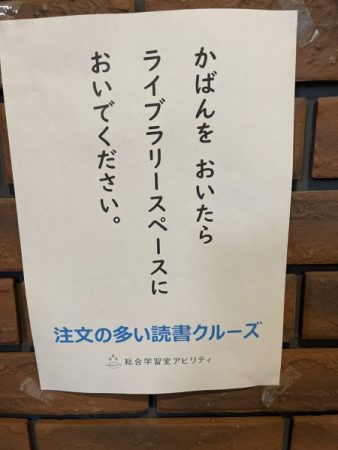 かばんを おいたら
ライブラリースペースに
おいでください。
注文の多い読書クルーズ
総合学習室アビリティ